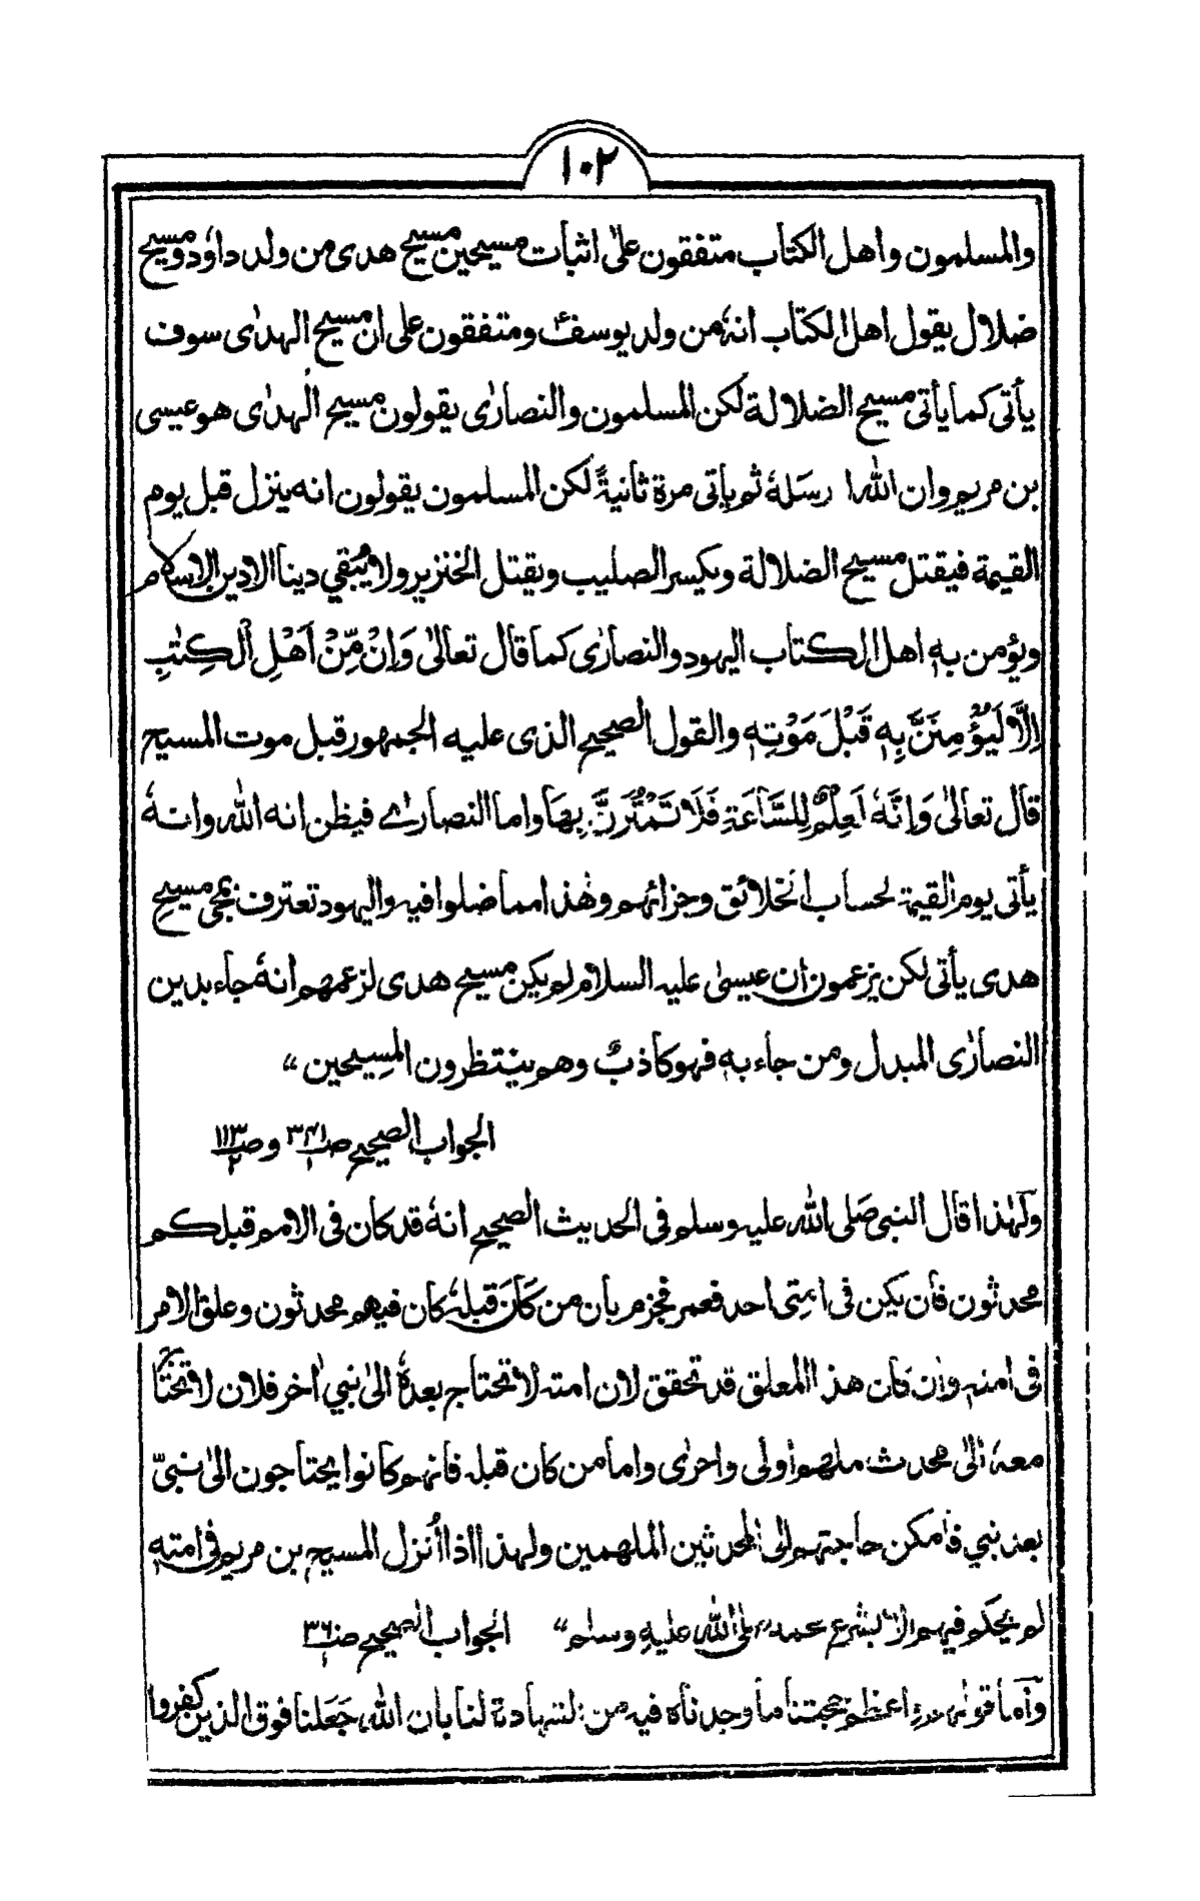 ١٠٢
والمسلمون واهل الكتاب متفقون على اثبات مسيحين مسيح هدى من ولد داؤد ومسيح
ضلال يقول اهل الكتاب انهٗ من ولد يوسفؑ ومتفقون على ان مسيح الهدٰى سوف
يأتى كما يأتى مسيح الضلالة لكن المسلمون والنصارٰى يقولون مسيح الهدٰى هو عيسى
بن مريم وان الله ارسَلهٗ ثم يأتى مرة ثانيةً لكن المسلمون يقولون انه ينزل قبل يوم
القيٰمة فيقتل مسيح الضلالة ويكسر الصليب ويقتل الخنزير ولا يُبقي دينا الا دين الاسلام
ويؤمن به اهل الكتاب اليهود والنصارٰى كما قال تعالىٰ وَاِنْ مِّنْ اَهْلِ الْكِتٰبِ
اِلَّا لَيُؤْمِنَنَّ بِهٖ قَبْلَ مَوْتِهٖ والقول الصحيح الذى عليه الجمهور قبل موت المسيح
قال تعالىٰ وَاِنَّهٗ لَعِلْمٌ لِلسَّاعَةِ فَلَا تَمْتَرُنَّ بِهَا واما النصارٰے فيظن انه الله وانهٗ
يأتى يوم القيٰمة لحساب الخلائق وجزائهم وهٰذا مما ضلوا فيه واليهود تعترف بمجئ مسيح
هدى يأتى لكن يزعمون ان عيسىٰ عليه السلام لم يكن مسيح هدى لزعمهم انهٗ جاء بدين
النصارٰى المبدل ومن جاء به فهو كاذبٌ وهم ينتظرون المسيحين “
الجواب الصحيح صـ٣٤١/١ وصـ١١٣/٢
ولهٰذا قال النبى صَلى الله عليه وسلم فى الحديث الصحيح انهٗ قد كان فى الامم قبلكم
محدثون فان يكن فى امتى احد فعمر فجزم بان من كَانَ قبلهٗ كان فيهم محدثون وعلق الامر
فى امته وان كان هذا المعلق قد تحقق لان امته لا تحتاج بعدهٗ الىٰ نبي اٰخر فلان لا تحتاج
معهٗ الىٰ محدث ملهم اولى واحرٰى واما من كان قبله فانهم كانوا يحتاجون الىٰ نبىّ
بعد نبي فامكن حاجتهم الى المحدثين الملهمين ولهذا اذا اُنزل المسيح بن مريم فى امته
لم يحكم فيهم الا بشرع محمد صلى الله عليه وسلم“ الجواب الصحيح صـ٣٦/١
وَاَما قولهم اعظم حجتنا ما وجدناه فيه من الشهادة لنا بان الله جَعَلنا فوق الذين كفروا